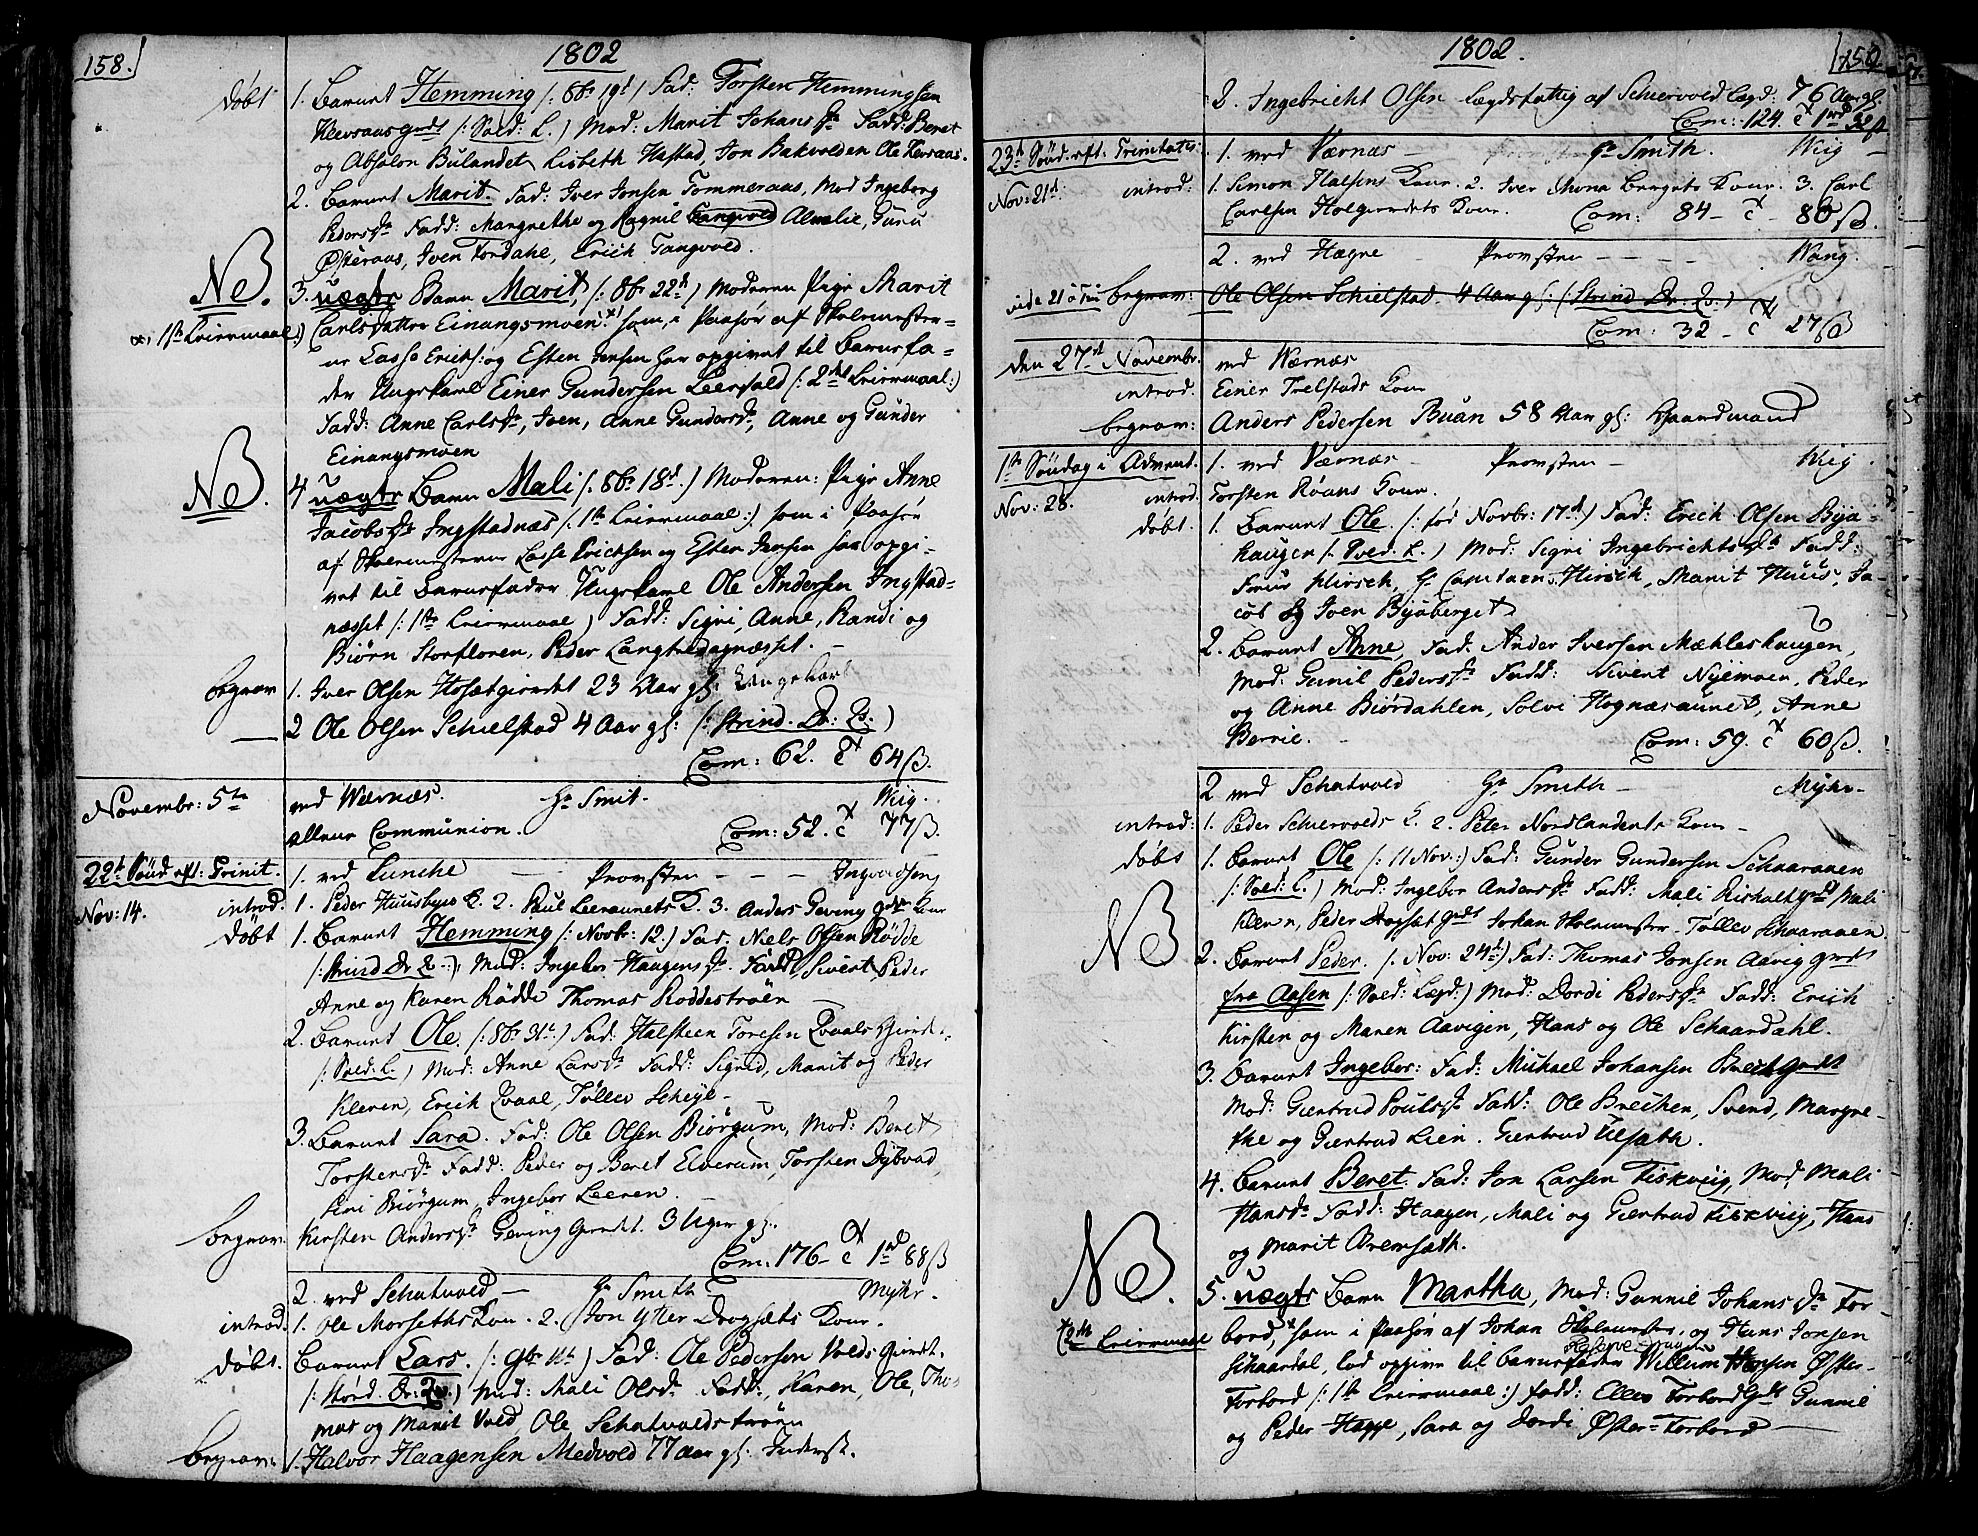 158.
1802
døbt 1. Barnet Hemming /: 8br 19d / Fad: Torsten Hemmingsen
Klevsaas /: Sold: L. / Mod: Marit Johans Dr Fadd: Beret
og Absalon Bulandet, Lisbeth Hastad, Jon Bakvolden Ole Klevsaas.
2. Barnet Marit. Fad: Iver Jonsen Tommeraas, Mod Ingeborg
Peders Dr Fadd: Margrethe og Ragnil Tangvold Almelie, Guru
Østeraas, Iven Fordahl, Erich Tangvold.
NB. 3. uægte Barn Marit, /: 8br 22de / Moderen Pige Marit
x, 1ste Leiermaal :) Carlsdatter Einangsmoen x) som, i Paasør af Skolemester-
ne Lasse Erichs: og Esten Jensen har opgivet til Barnefa-
der Ungekarl Einer Gundersen Leerfald /: 2det Leiermaal :)
Fadd: Anne Carls Dr, Joen, Anne Gunders Dr, Anne og Gunder
Einangsmoen
NB. 4 uægte Barn Mali /: 8br 18d. / Moderen: Pige Anne
Jacobs Dr Ingstadnæs /: 1ste Leiermaal :) som i Paasør
af Skolemesterne Lasse Erichsen og Esten Jensen har opgi-
vet til Barnefader Ungekarl Ole Andersen Ingstad-
næsset /: 1ste Leiermaal / Fadd: Sigri, Anne, Randi og
Biørn Storfloren, Peder Langtredagnæsset.
begrav 1. Iver Olsen Hosætgierdet 23 Aar gl: Ungekarl
2 Ole Olsen Schielstad 4 Aar gl: (: Strind. Dr: L: )
Com: 62. c 64 ß.
Novembr: 5te ved Wærnæs. Hr Smit. Wiig.
allene Communion. Com: 52. c 77 ß.
22de Sønd eft: Trinit. 1. ved Lunche Provsten Ingvaldsen
Nov: 14. introd. 1. Peder Huusbyes K. 2. Paul Leeraunets K. 3. Anders Geving Kone
døbt 1. Barnet Hemming /: Novbr: 12. / Fad. Niels Olsen Rødde
/: Strind Dr L :) Mod: Ingebor Haagens Dr Fadd: Sivert, Peder
Anne og Karen Rødde Thomas Roddestrøen
2. Barnet Ole. /: 8br 31te / Fad: Halsteen Toresen Qvaals Gierdet.
/: Sold: L. / Mod: Anne Lars Dr Fadd: Sigrid, Marit og Peder
Kleven, Erich Qvaal, Tøllev Scheyl.
3. Barnet Sara. Fad: Ole Olsen Biørgum, Mod: Beret
Torstens Dr Fadd: Peder og Beret Elverum, Torsten Dybvad,
Siri Biørgum, Ingebor Leeren.
begrav. Kirsten Anders Dr Geving Gierdet. 3 Uger gl.
Com: 176 c 1 rd 88 ß
2. ved Schatvold Hr Smith Myhr.
introd. 1. Ole Morseths Kone. 2. Jon Ytter Drogsæts Kone.
døbt. Barnet Lars. /: 9br 11te / Fad: Ole Pedersen Volds Gierdet.
/: Mod: Mali Ols Dr. Fadd:, Karen, Ole, Tho-
mas og Marit Vold, Ole Schatvoldstrøen
begrav. 1. Halvor Haagensen Medvold 77 aar gl. Inderst.
1802.
159
2. Ingebricht Olsen lægdsfattig af Schiervold lægd: 76 Aar gl.
Com: 124. c 1 rd
23de Sønd: eft: Trinitatis 1. ved Værnæs Hr Smith. Wiig
Nov: 21d. introd: 1. Simon Halsens Kone. 2. Iver Mona Bergets Kone. 3. Carl
Carlsen Holgierdets Kone. Com: 84 c 80 ß.
2. ved Hægre Provsten Wang.
begrav: Ole Olsen Schielstad. 4 Aar gl: (Strind Dr: L.)
Com: 32 c 27 ß
den 27de Novembr. ved Wærnæs
introd. Einer Trelstads Kone
begrav: Anders Pedersen Buan 58 Aar gl: Gaardmand
1ste Søndag i Advent. 1. ved Værnæs Provsten Wiig
Nov: 28. introd. Torsten Røans Kone.
døbt. 1. Barnet Ole. /: fød Novbr: 17d / Fad: Erich Olsen Bya-
haugen /. L. / Mod: Sigri Ingebrichts Dr Fadd:
Frue Hirsch, Hr Capitaen Hirsch, Marit Huus, Ja-
cob og Joen Byaberget
2. Barnet Anne, Fad. Ander Iversen Mæhleshaugen,
Mod: Gunil Peders Dr Fadd: Sivert Nyemoen, Peder
og Anne Biørdahlen, Solvi Hognæsaunet, Anne
Berrie. Com: 59. c 60 ß.
2 ved Schatvold Hr Smith Myhr
introd: 1. Peder Schiervolds K. 2. Peter Nordlandents Kone
døbt 1. Barnet Ole /: 11 Nov: / Fad: Gunder Gundersen Schaaraaen
/: Sold: L. / Mod: Ingebor Anders Dr Fadd: Mali, Mali
Kleven, Peder Drogset Johan Skolemester. Tøllev Schaaraaen.
NB 2. Barnet Peder. /. Nov: 24d / Fad: Thomas Jonsen Aavig
fra Aasen /: Sold: Lægd: / Mod: Dordi Peders Dr Fadd: Erich
Kirsten og Maren Aavigen, Hans og Ole Schaardahl.
3. Barnet Ingebor: Fad: Michael Johansen
Mod: Giertrud Pouls Dr Fadd: Ole Brechen, Svend, Margre-
the og Giertrud Lien. Giertrud Ulsath.
4. Barnet Beret. Fad: Jon Larsen Fiskviig, Mod Mali
Hans Dr Fadd: Haagen, Mali og Giertrud Fiskviig, Hans
og Marit Bremsæth.
NB. 5. uægte Barn Martha, Mod: Gunnil Johans Dr For-
x 2den Leiermaal bord, x som i Paasør af Johan Skolemester, og Hans Jonsen
Schaardal, lod opgive til Barnefader Willum Hansen Øster-
Forbord /: 1ste Leiermaal :) Fadd: Ellev Forbord Gunnil
og Peder Happe, Sara og Dordi Øster-Forbord